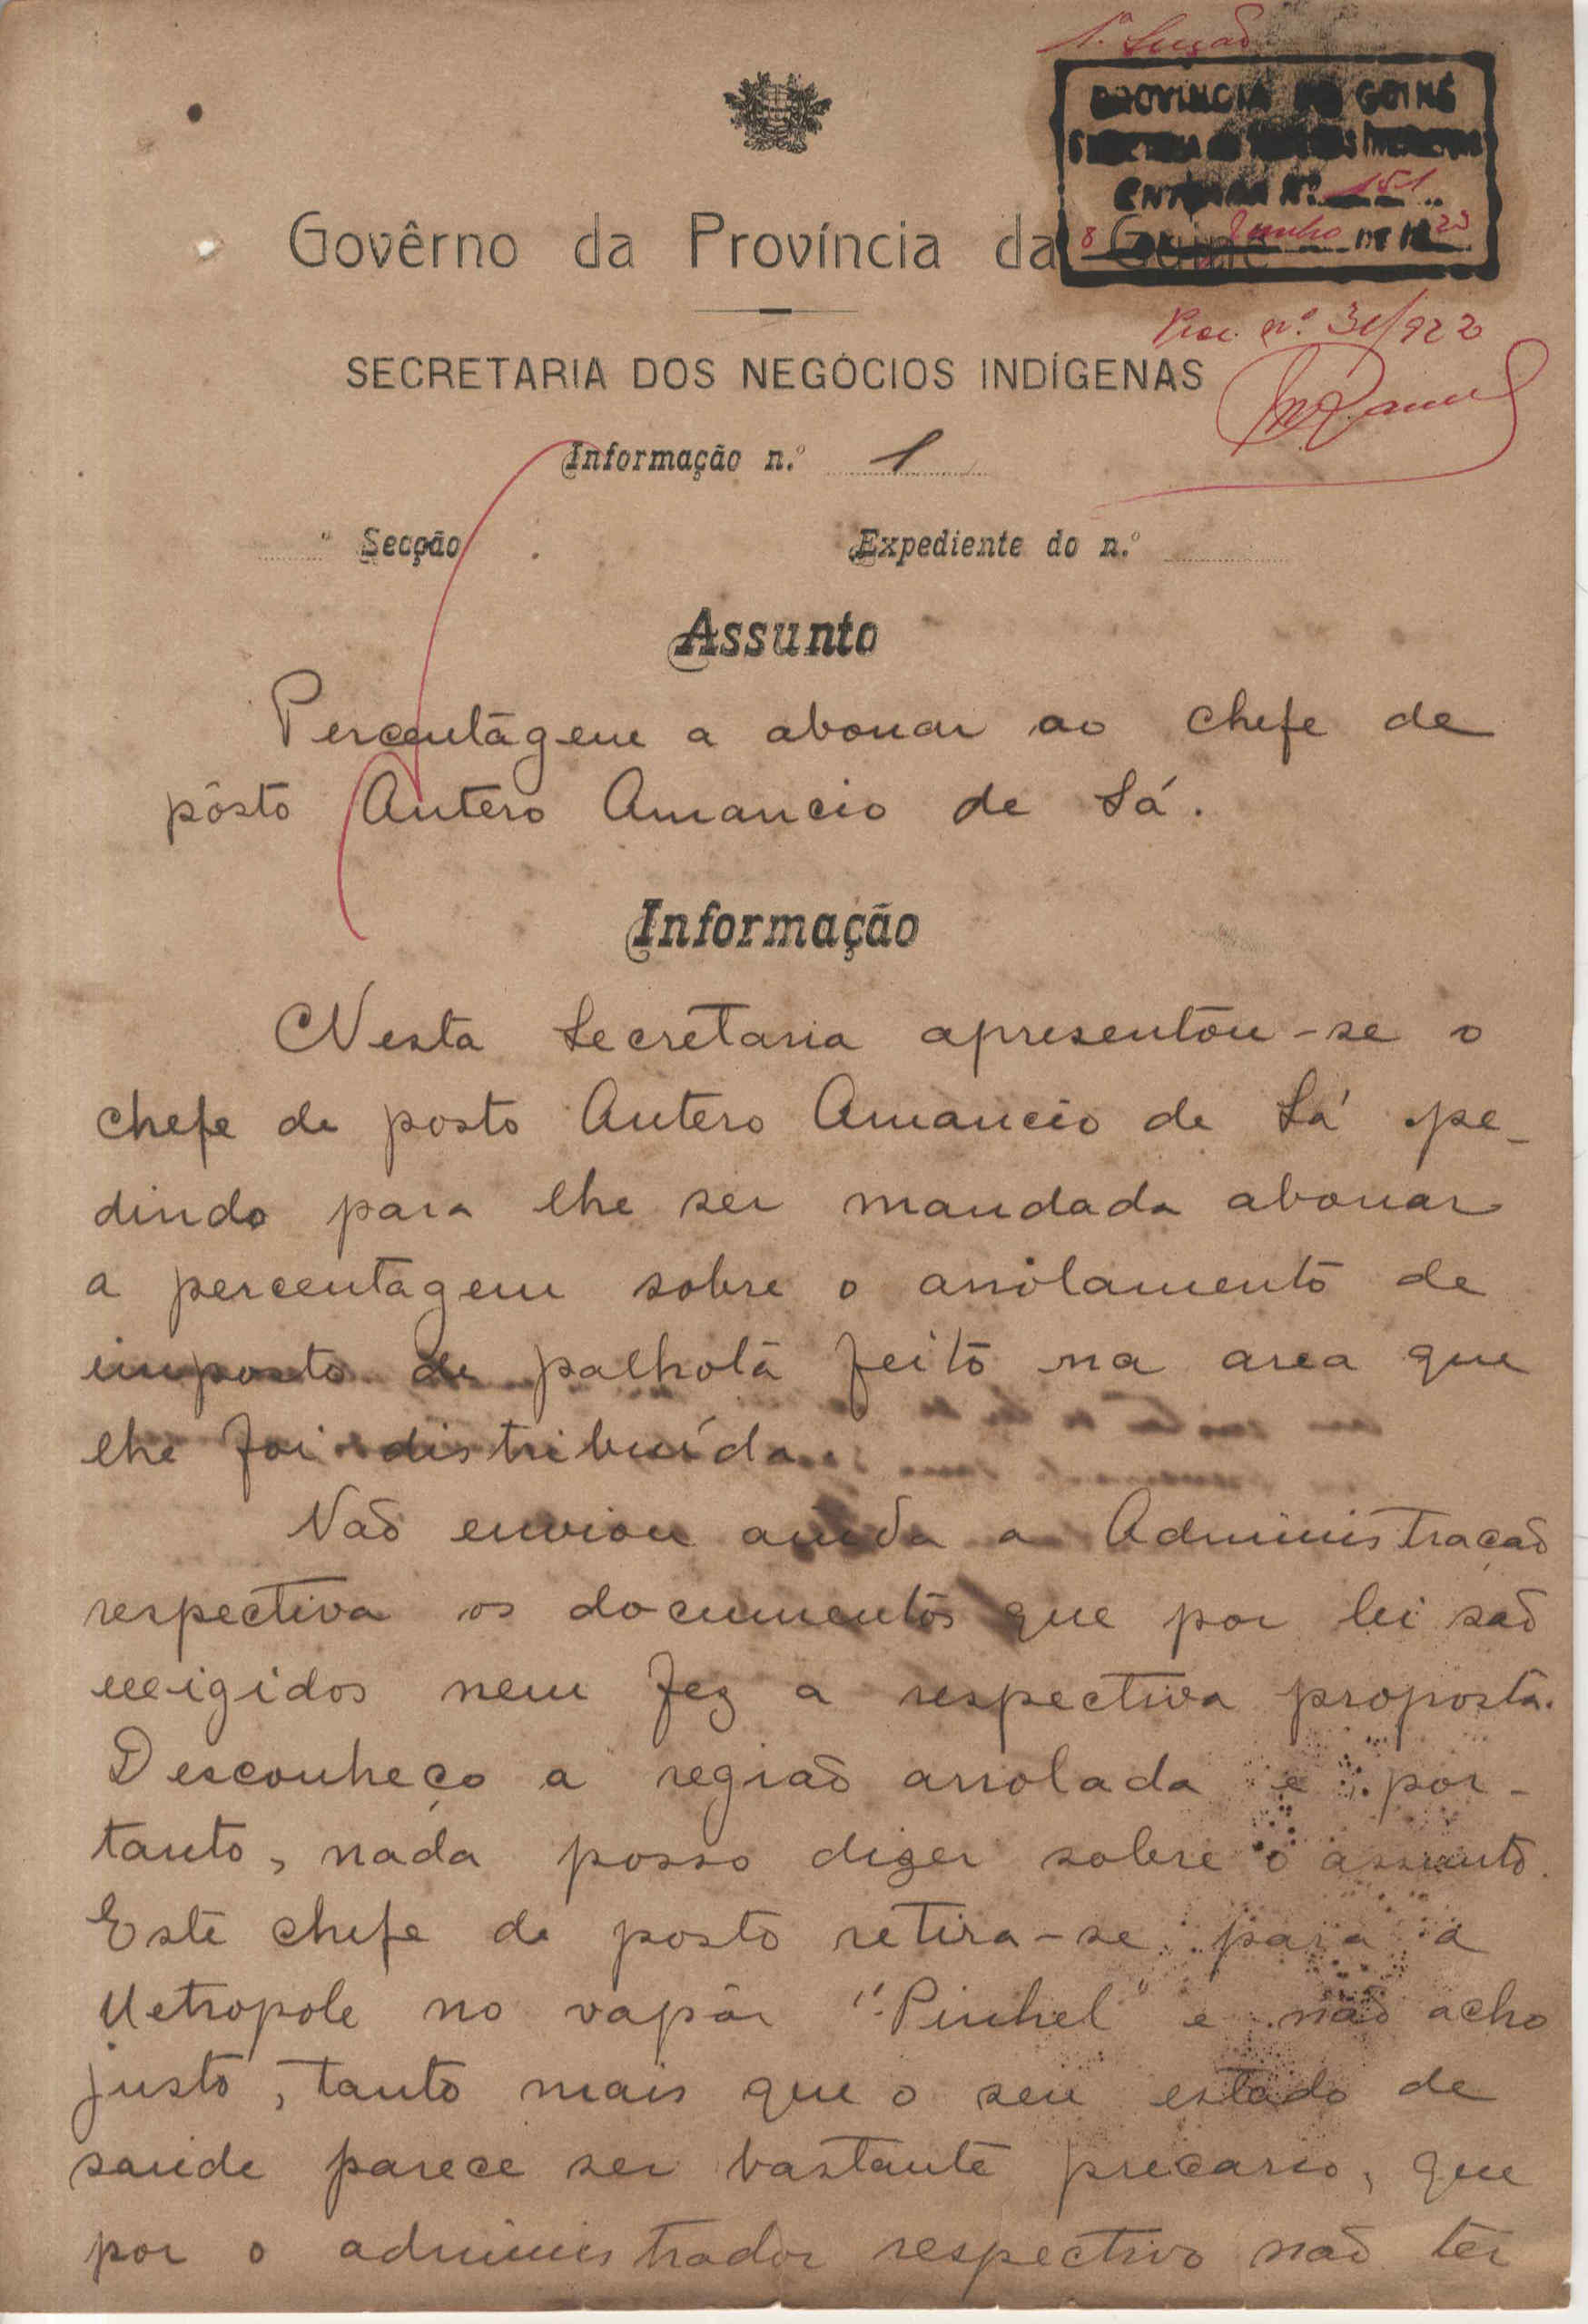 1.ª Secção
PROVINCIA DA GUINÉ
SECRETARIA DOS NEGOCIOS INDIGENAS
ENTRADA Nº 151
8 Junho DE 1923
Govêrno da Província da Guiné
Proc. nº. 31/922
SECRETARIA DOS NEGÓCIOS INDÍGENAS
Informação n.º 1
ª Secção
Expediente do n.º
Assunto
Percentagem a abonar ao chefe de
pôsto Antero Amancio de Sá.
Informação
Nesta Secretaria apresentou-se o
chefe de posto Antero Amancio de Sá pe-
dindo para lhe ser mandada abonar
a percentagem sobre o arrolamento de
imposto de palhota feito na area que
lhe foi distribuída.
Não enviou ainda a Administração
respectiva os documentos que por lei são
exigidos nem fez a respectiva proposta.
Desconheço a região arrolada e por-
tanto, nada posso dizer sobre o assunto.
Este chefe de posto retira-se para a
Metropole no vapôr "Pinhel" e não acho
justo, tanto mais que o seu estado de
saude parece ser bastante precario, que
por o administrador respectivo não ter